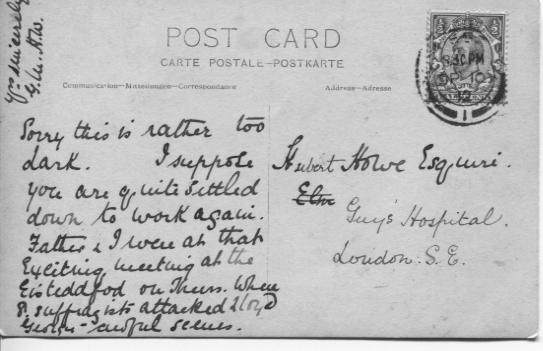 POST CARD
CARTE POSTALE—POSTKARTE
Communication—Mitteilungen—Correspondance
Address—Adresse
Sorry this is rather too
dark. I suppose
you are quite settled
down to work again.
Father & I were at that
Exciting meeting at the
Eisteddfod on Thurs. When
8. suffragists attacked Lloyd
George - awful scenes.
Yrs sincerely
G.M.
Hubert Howe Esquire.
Elm
Guy's Hospital.
London. S.E.